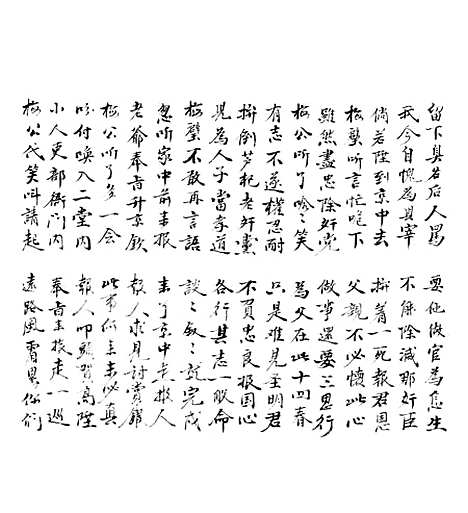 留下臭名后人罵 要他做官為怎生
我今自愧為縣宰 不能除減那奸臣
倘若陞到京中去 拚着一死報君恩
梅璧听言忙跪下 父親不必懷此心
雖然盡忠除奸党 做事還要三思行
梅公听了哈哈笑 為父在此十四春
有志不遂權忍耐 只是难見圣明君
拚倒芦杞老奸党 不負忠良报國心
兒為人子當孝道 各行其志一般命
梅璧不敢再言語 談談敘敘就完成
忽听家中前来报 来了京中走报人
老爺奉旨升京欽 報人求見討賞銀
梅公听了多一会 此事你来未必真
吩付喚入二堂内 報人叩頭賀高陞
小人吏部衙门内 奉旨来报走一巡
梅公代笑叫請起 遠路風霜累你們